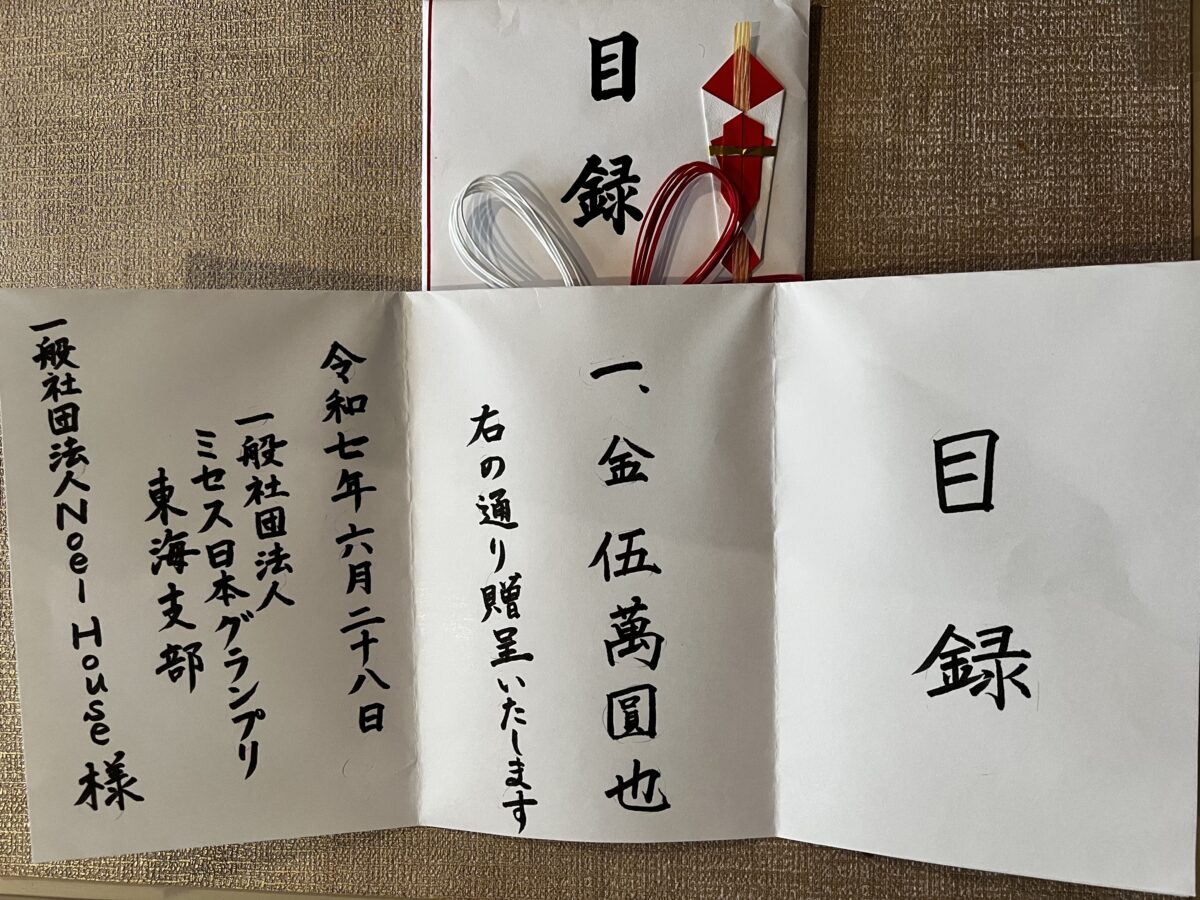 目録
目録
一、金伍萬圓也
右の通り贈呈いたします
令和七年六月二十八日
一般社団法人
ミセス日本グランプリ
東海支部
一般社団法人Noel House様